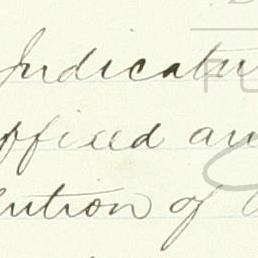 Judicatu
affixed an
lution of